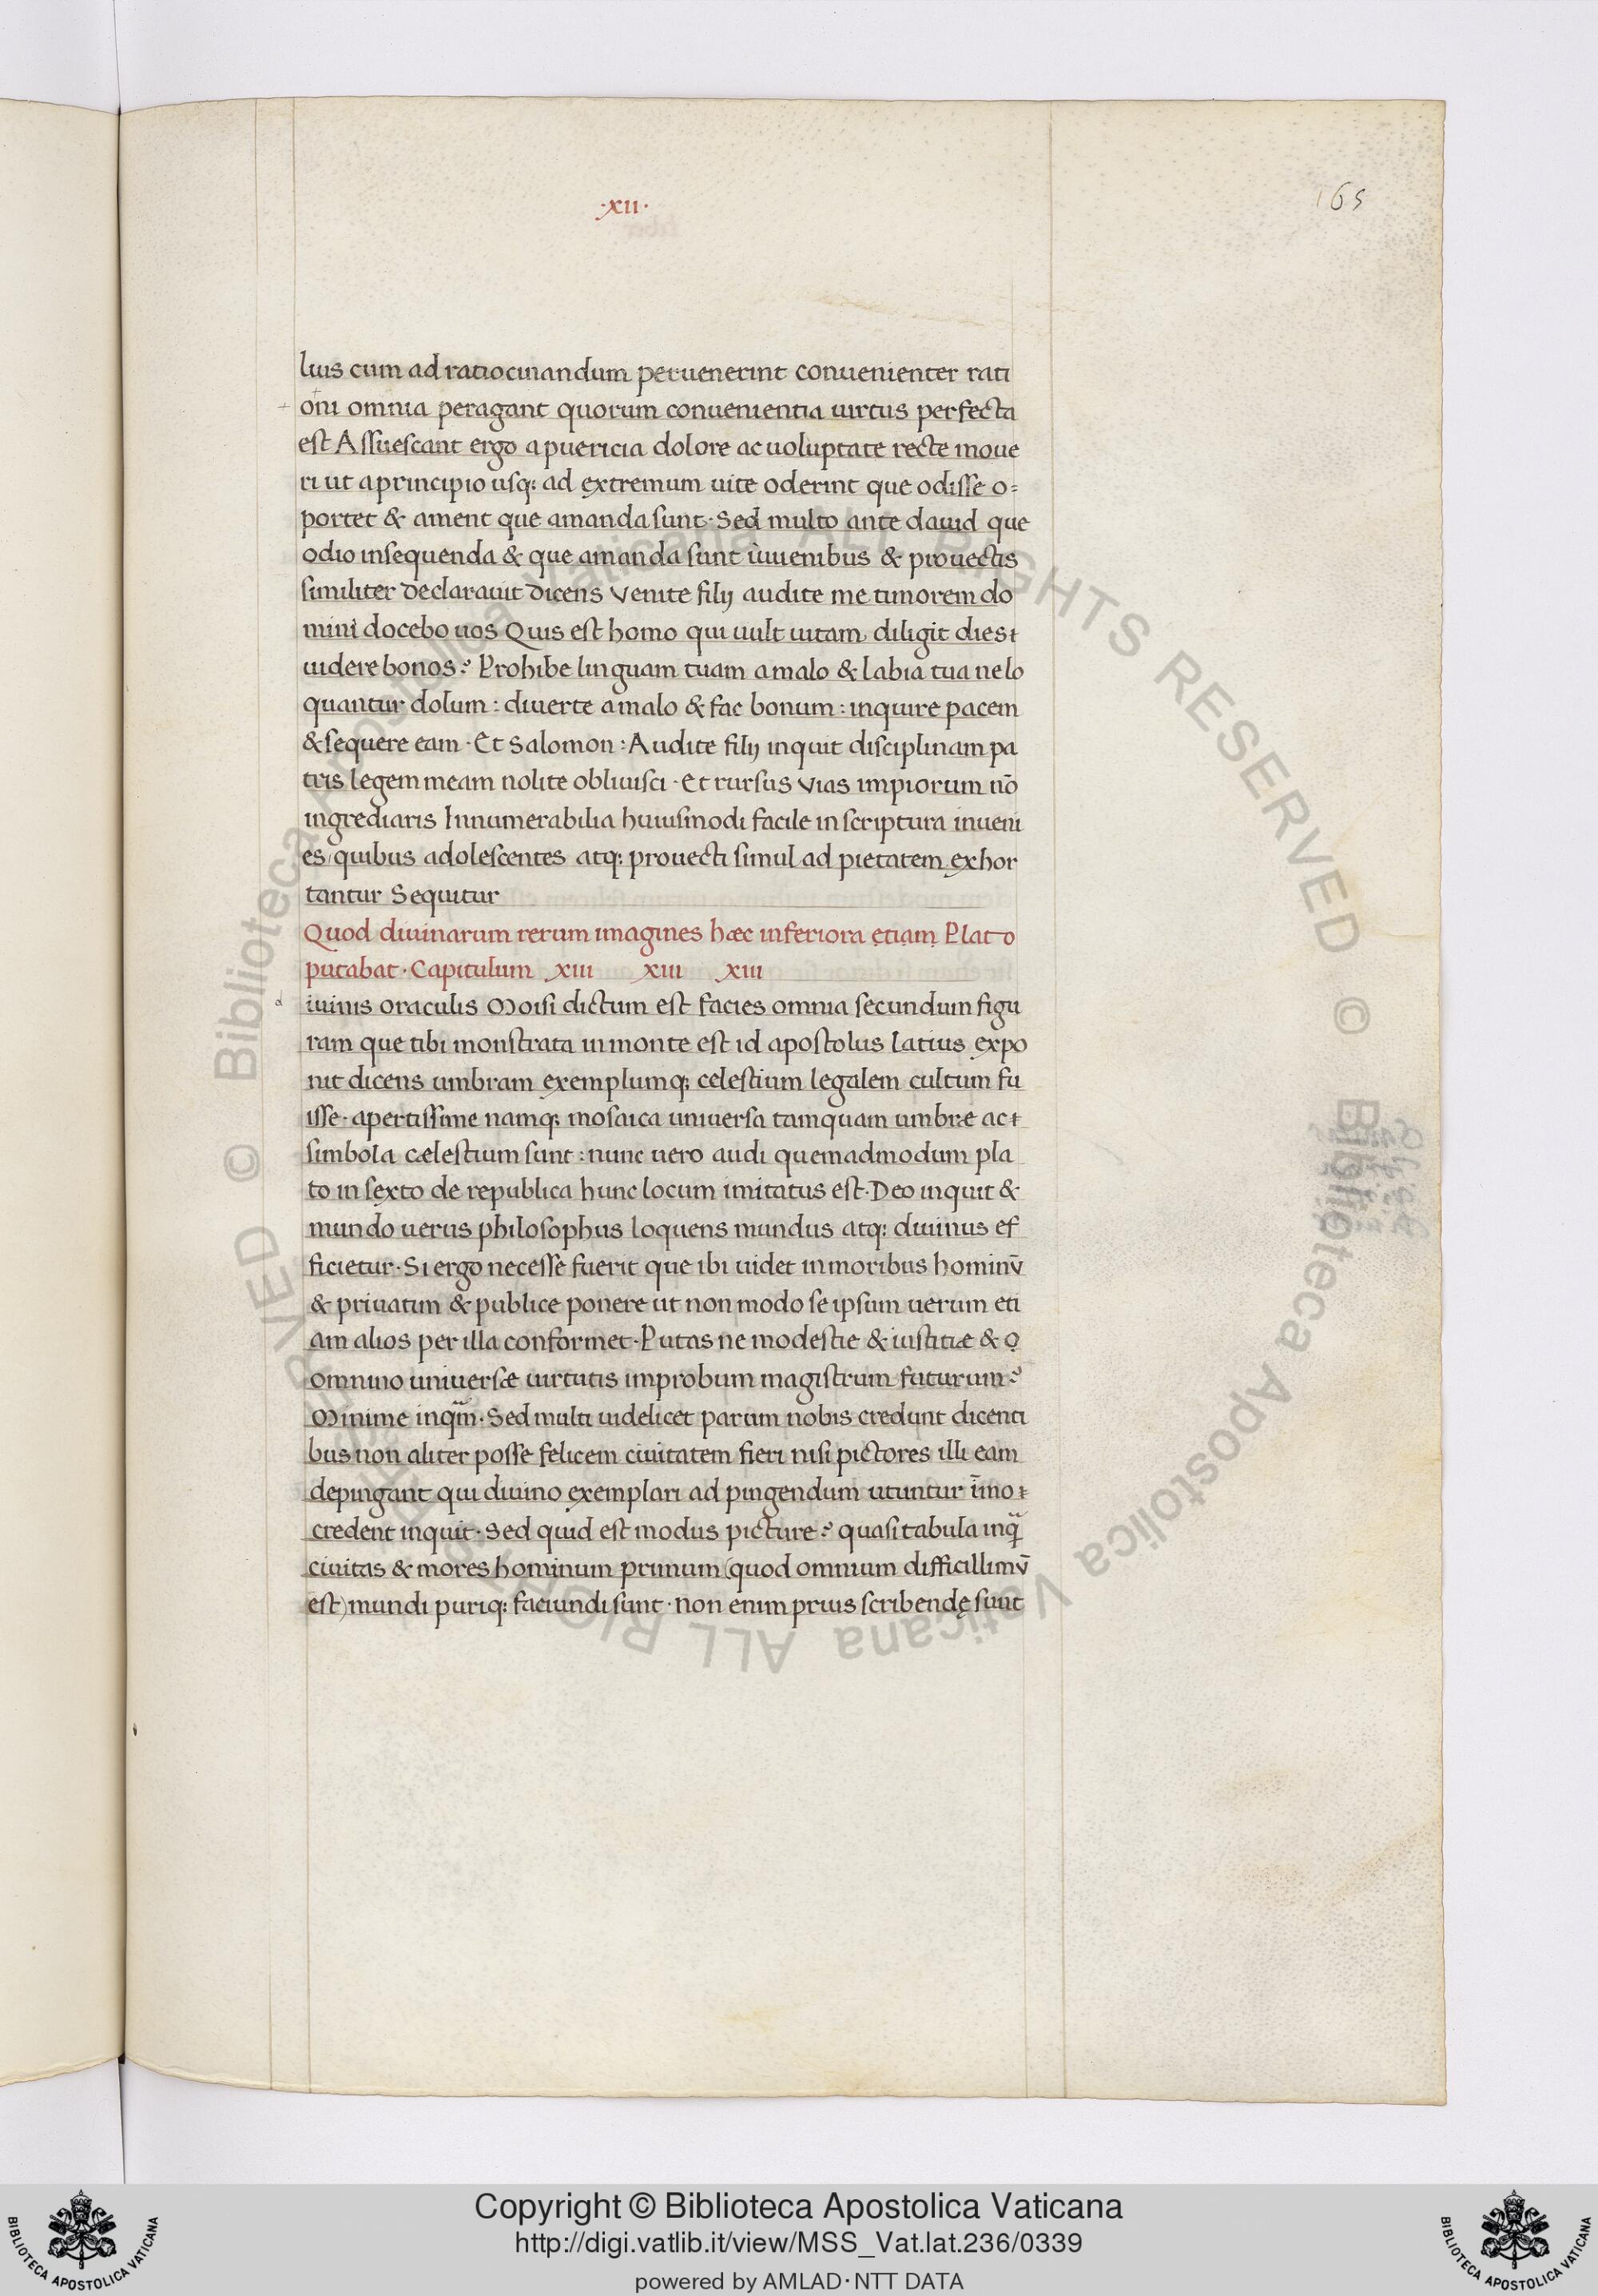 ·xii·
165
luis cum ad ratiocinandum peruenerint conuenienter rati
oni omnia peragant quorum conuenientia uirtus perfecta
est Assuescant ergo a puericia dolore ac uoluptate recte moue
ri ut a principio usq; ad extremum uite oderint que odisse o=
portet & ament que amanda sunt· Sed multo ante dauid que
odio insequenda & que amanda sunt iuuenibus & prouectis
similiter declarauit dicens Venite filij audite me timorem do
mini docebo uos Quis est homo qui uult uitam diligit dies
uidere bonos? Prohibe linguam tuam a malo & labia tua ne lo
quantur dolum: diuerte a malo & fac bonum: inquire pacem
& sequere eam· Et Salomon: Audite filij inquit disciplinam pa
tris legem meam nolite obliuisci· Et rursus Vias impiorum nō
ingrediaris Innumerabilia huiusmodi facile in scriptura inueni
es/quibus adolescentes atq; prouecti simul ad pietatem exhor
tantur Sequitur
Quod diuinarum rerum imagines hæc inferiora etiam Plato
putabat· Capitulum xiii xiii xiii
d
iuinis oraculis Moisi dictum est facies omnia secundum figu
ram que tibi monstrata in monte est id apostolus latius expo
nit dicens umbram exemplumq; celestium legalem cultum fu
isse· apertissime namq; mosaica uniuersa tamquam umbræ ac
simbola cælestium sunt: nunc uero audi quemadmodum pla
to in sexto de republica hunc locum imitatus est· Deo inquit &
mundo uerus philosophus loquens mundus atq; diuinus ef
ficietur· Si ergo necesse fuerit que ibi uidet in moribus hominū
& priuatim & publice ponere ut non modo se ipsum uerum eti
am alios per illa conformet· Putas ne modestie & iustitiæ & o
omnino uniuersæ uirtutis improbum magistrum futurum?
Minime inquam· Sed multi uidelicet parum nobis credunt dicenti
bus non aliter posse felicem ciuitatem fieri nisi pictores illi eam
depingant qui diuino exemplari ad pingendum utuntur īmo
credent inquit· Sed quid est modus picture? quasi tabula inq̃
ciuitas & mores hominum primum (quod omnium difficillimū
est) mundi puriq; faciundi sunt· non enim prius scribendę sunt
Copyright © Biblioteca Apostolica Vaticana
http://digi.vatlib.it/view/MSS_Vat.lat.236/0339
powered by AMLAD·NTT DATA
BIBLIOTECA APOSTOLICA VATICANA
BIBLIOTECA APOSTOLICA VATICANA